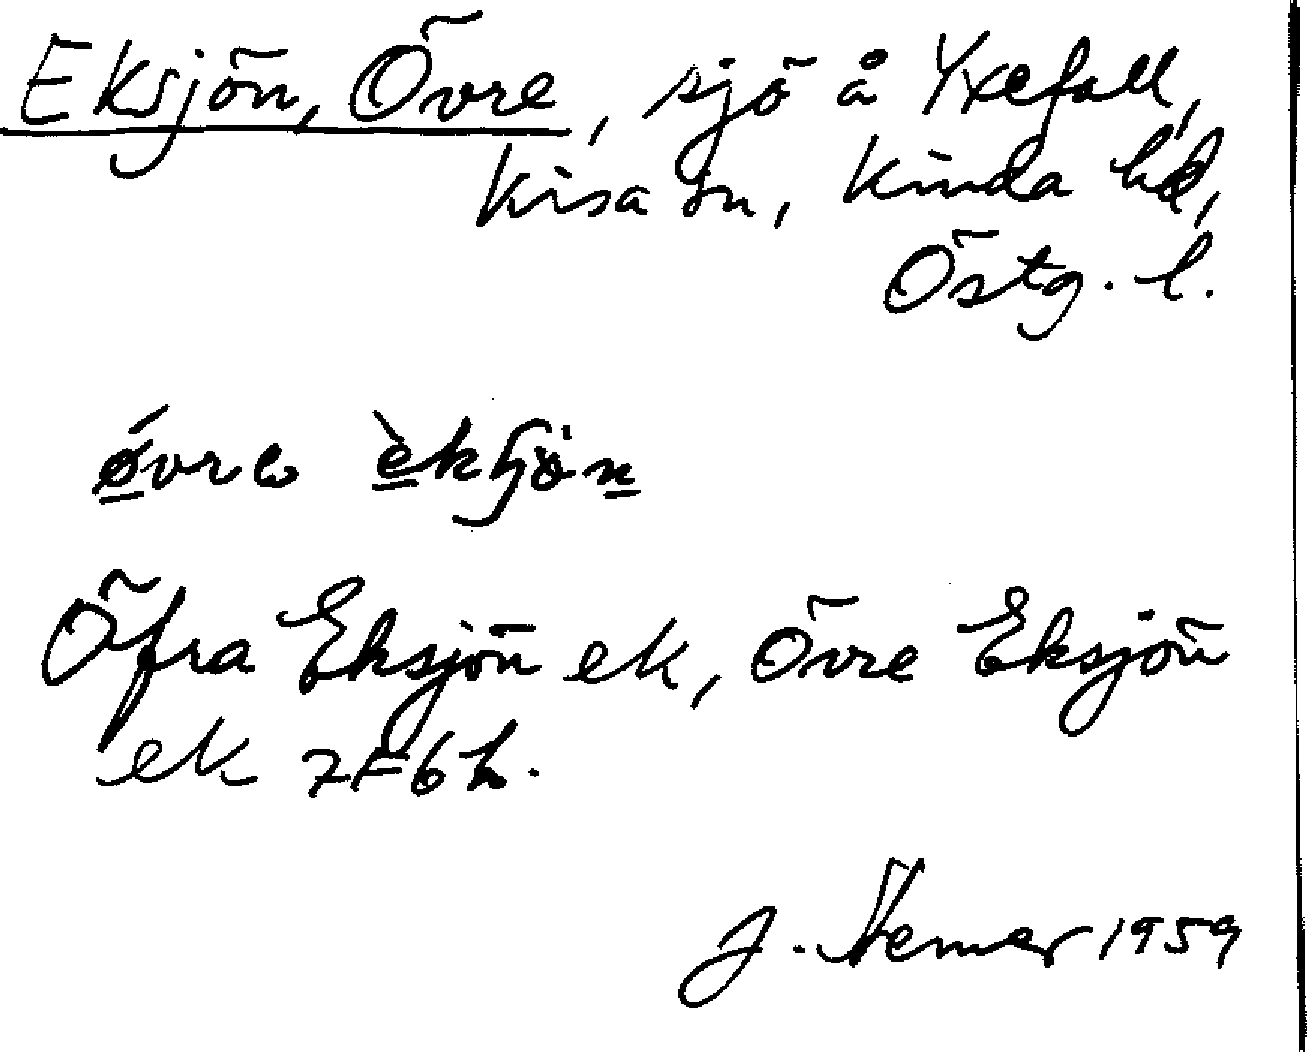 Eksjön, Övre, sjö å Yxefall,
Kisa sn, Kinda hd,
Östg. l.
Öfra Eksjön ek, Övre Eksjön
ek 7F6h.
J. 1959